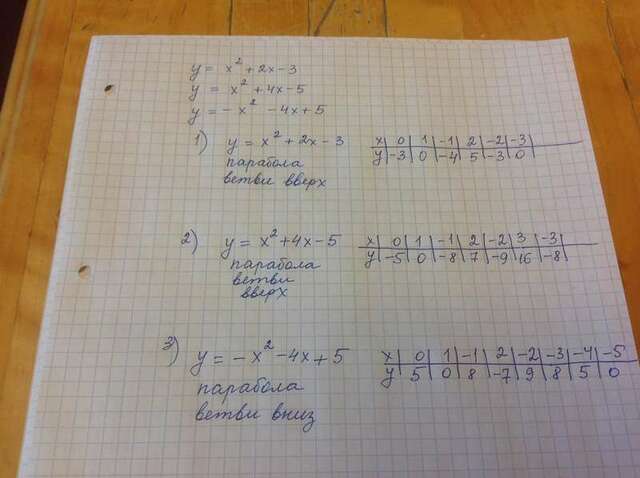 y = x² + 2x - 3
y = x² + 4x - 5
y = - x² - 4x + 5
1) y = x² + 2x - 3
парабола
ветви вверх
x | 0 | 1 | -1 | 2 | -2 | -3 |
y | -3 | 0 | -4 | 5 | -3 | 0 |
2) y = x² + 4x - 5
парабола
ветви
вверх
x | 0 | 1 | -1 | 2 | -2 | 3 | -3 |
y | -5 | 0 | -8 | 7 | -9 | 16 | -8 |
3) y = - x² - 4x + 5
парабола
ветви вниз
x | 0 | 1 | -1 | 2 | -2 | -3 | -4 | -5
y | 5 | 0 | 8 | -7 | 9 | 8 | 5 | 0